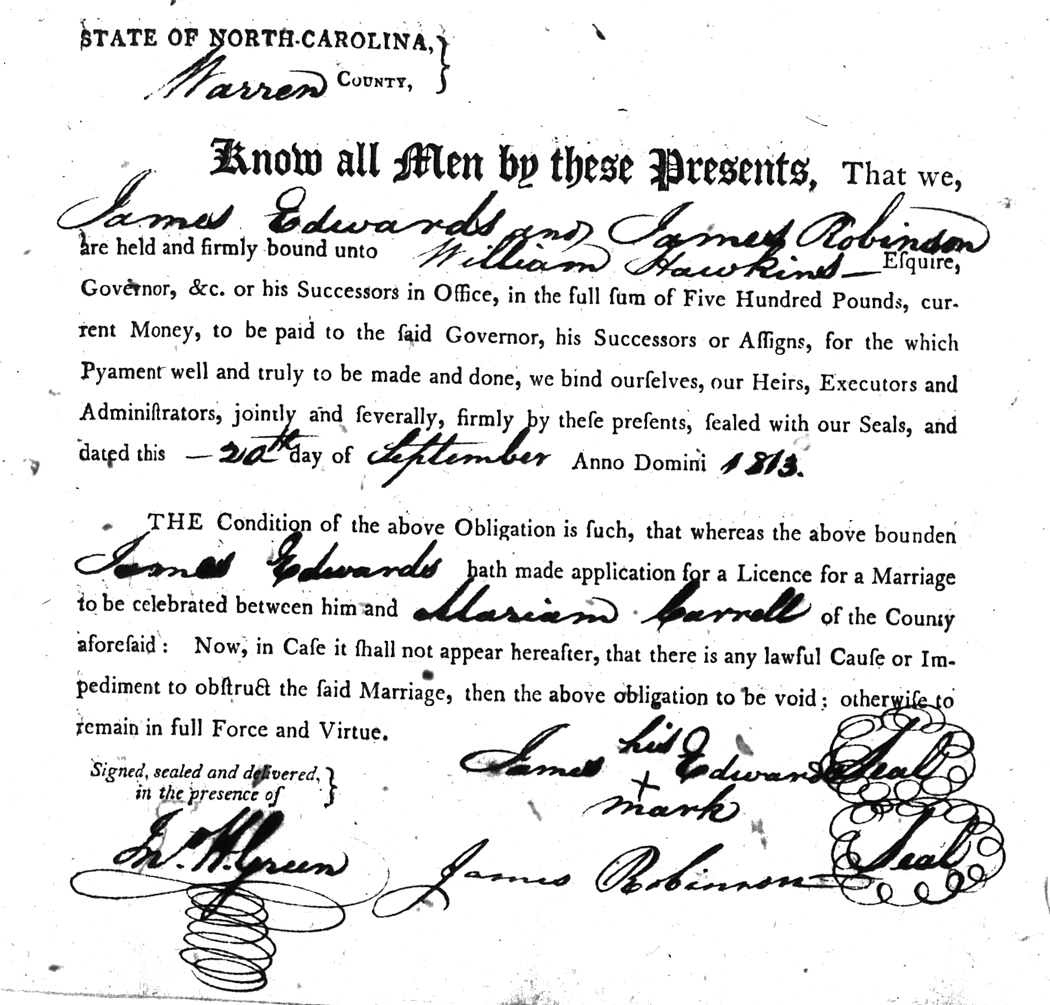 STATE OF NORTH-CAROLINA,
Warren COUNTY,
Know all Men by these Presents, That we,
James Edwards and James Robinson
are held and firmly bound unto William Hawkins — Eſquire,
Governor, &c. or his Successors in Office, in the full ſum of Five Hundred Pounds, cur-
rent Money, to be paid to the ſaid Governor, his Successors or Aſſigns, for the which
Pyament well and truly to be made and done, we bind ourſelves, our Heirs, Executors and
Adminiſtrators, jointly and ſeverally, firmly by theſe preſents, ſealed with our Seals, and
dated this — 20th day of September Anno Domini 1813.
THE Condition of the above Obligation is ſuch, that whereas the above bounden
James Edwards hath made application for a Licence for a Marriage
to be celebrated between him and Mariam Carrell of the County
aforeſaid: Now, in Caſe it ſhall not appear hereafter, that there is any lawful Cauſe or Im-
pediment to obſtruct the ſaid Marriage, then the above obligation to be void: otherwiſe to
remain in full Force and Virtue.
Signed, sealed and delivered,
in the presence of
his
James + Edwards Seal
mark
Jno. W. Green
James Robinson Seal